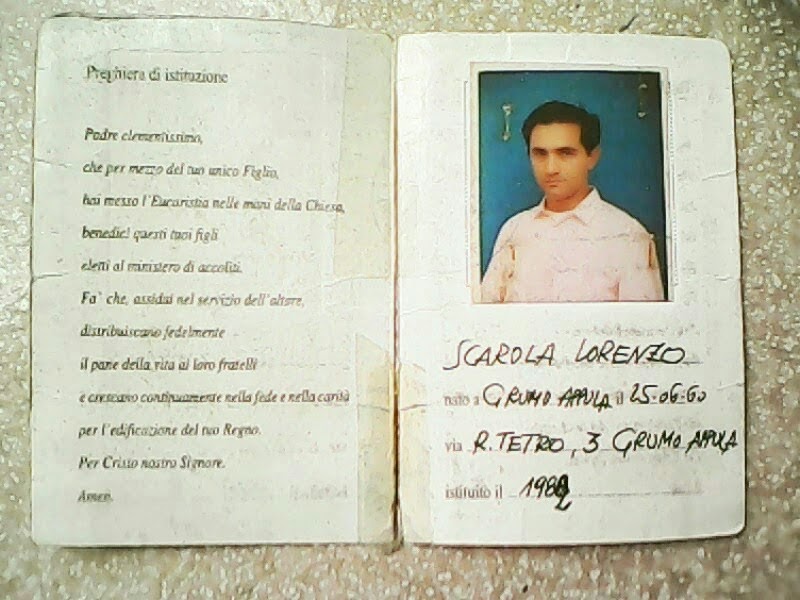 Preghiera di istituzione
Padre clementissimo,
che per mezzo del tuo unico Figlio,
hai messo l'Eucaristia nelle mani della Chiesa,
benedici questi tuoi figli
eletti al ministero di accoliti.
Fa' che, assidui nel servizio dell'altare,
distribuiscano fedelmente
il pane della vita ai loro fratelli
e crescano continuamente nella fede e nella carità
per l'edificazione del tuo Regno.
Per Cristo nostro Signore.
Amen.
SCAROLA LORENZO
nato a GRUMO APPULA il 25-06-60
via R. TETRO, 3 GRUMO APPULA
istituito il